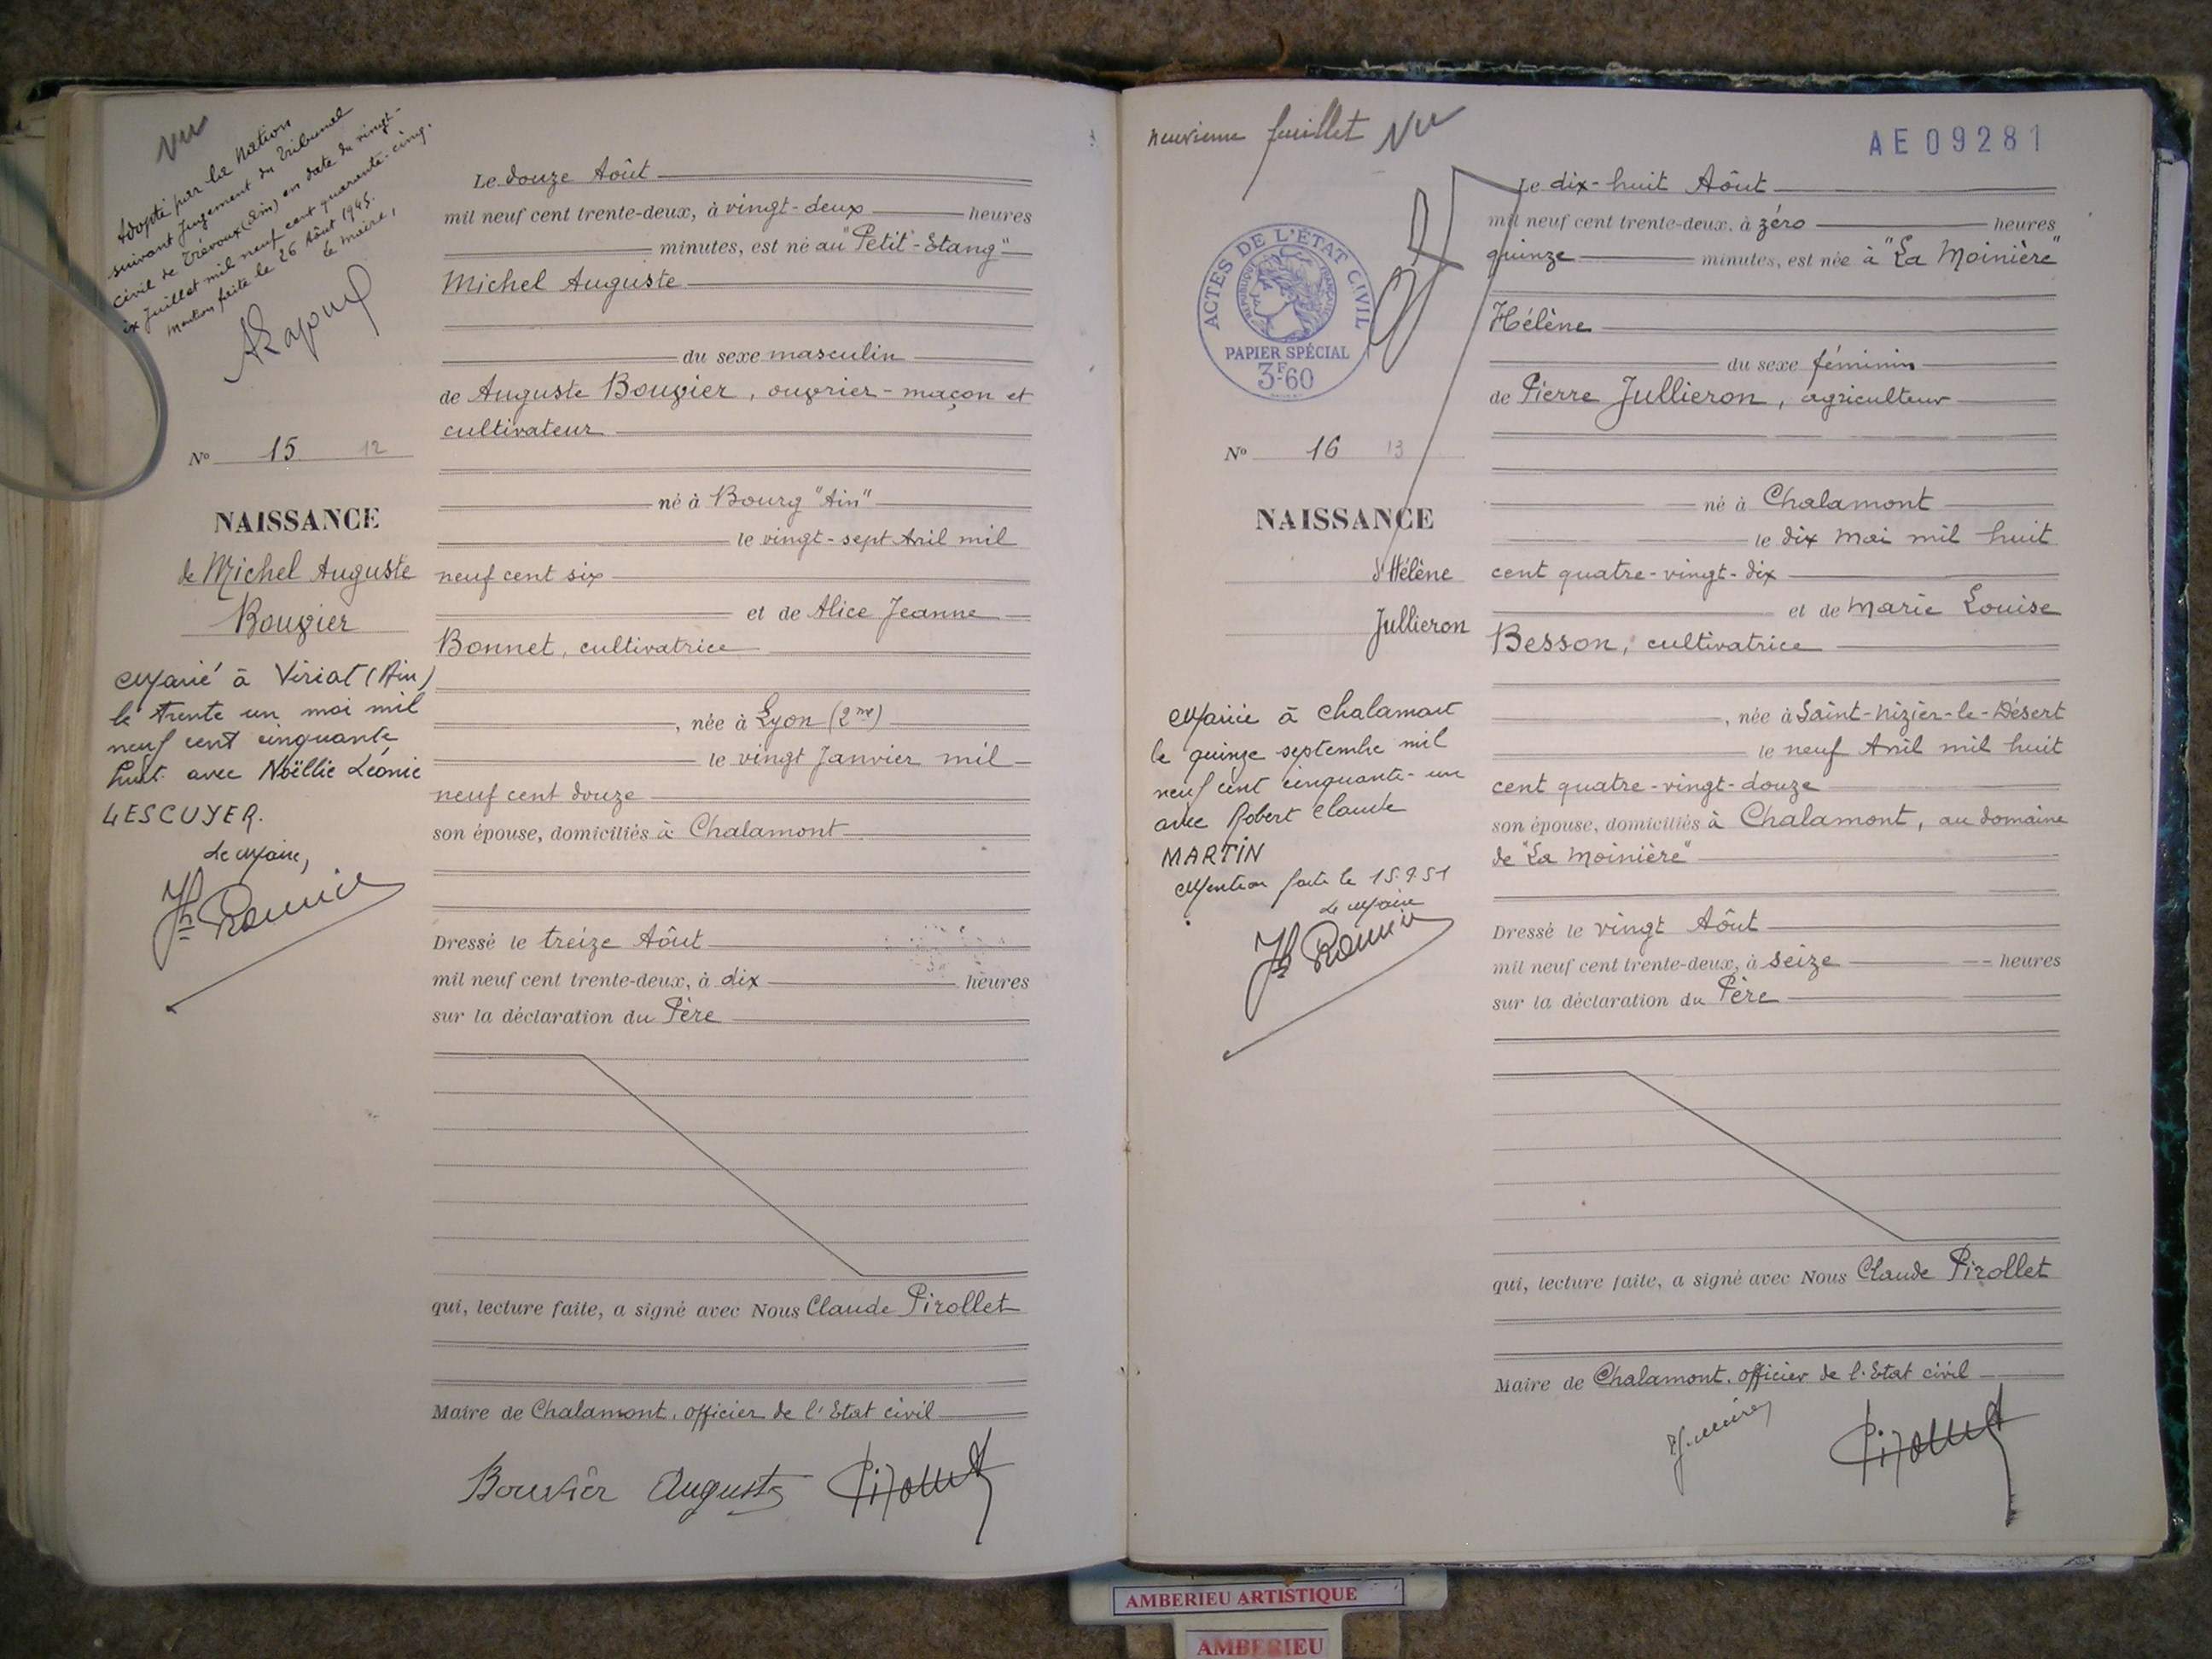 Vu
Adopté par la Nation
suivant Jugement du Tribunal
civil de Trévoux (Ain) en date du vingt-
six Juillet mil neuf cent quarante-cinq.
Mention faite le 26 Aôut 1945.
le Maire,
N° 15 12
NAISSANCE
de Michel Auguste
Bouvier
Marié à Viriat (Ain)
le trente un mai mil
neuf cent cinquante
huit avec Noëllie Léonie
LESCUYER.
Le Maire,
Le douze Aôut
mil neuf cent trente-deux, à vingt-deux heures
minutes, est né au "Petit-Etang"
Michel Auguste
du sexe masculin
de Auguste Bouvier, ouvrier-maçon et
cultivateur
né à Bourg "Ain"
le vingt-sept Avril mil
neuf cent six
et de Alice Jeanne
Bonnet, cultivatrice
, née à Lyon (2me)
le vingt Janvier mil
neuf cent douze
son épouse, domiciliés à Chalamont
Dressé le treize Aôut
mil neuf cent trente-deux, à dix heures
sur la déclaration du Père
qui, lecture faite, a signé avec Nous Claude Pirollet
Maire de Chalamont, officier de l'Etat civil
Bouvier Auguste Pirollet
neuvième feuillet Vu
AE09281
ACTES DE L'ÉTAT CIVIL
RÉPUBLIQUE FRANÇAISE
PAPIER SPÉCIAL
3F60
N° 16 13
NAISSANCE
d'Hélène
Jullieron
Mariée à Chalamont
le quinze septembre mil
neuf cent cinquante-un
avec Robert Claude
MARTIN
Mention faite le 15.9.51
Le Maire
Le dix-huit Aôut
mil neuf cent trente-deux, à zéro heures
quinze minutes, est née à "La Moinière"
Hélène
du sexe féminin
de Pierre Jullieron, agriculteur
né à Chalamont
le dix Mai mil huit
cent quatre-vingt-dix
et de Marie Louise
Besson, cultivatrice
, née à Saint-Nizier-le-Désert
le neuf Avril mil huit
cent quatre-vingt-douze
son épouse, domiciliés à Chalamont, au domaine
de "La Moinière"
Dressé le vingt Aôut
mil neuf cent trente-deux, à seize heures
sur la déclaration du Père
qui, lecture faite, a signé avec Nous Claude Pirollet
Maire de Chalamont, officier de l'Etat civil
Pirollet
AMBERIEU ARTISTIQUE
AMBERIEU